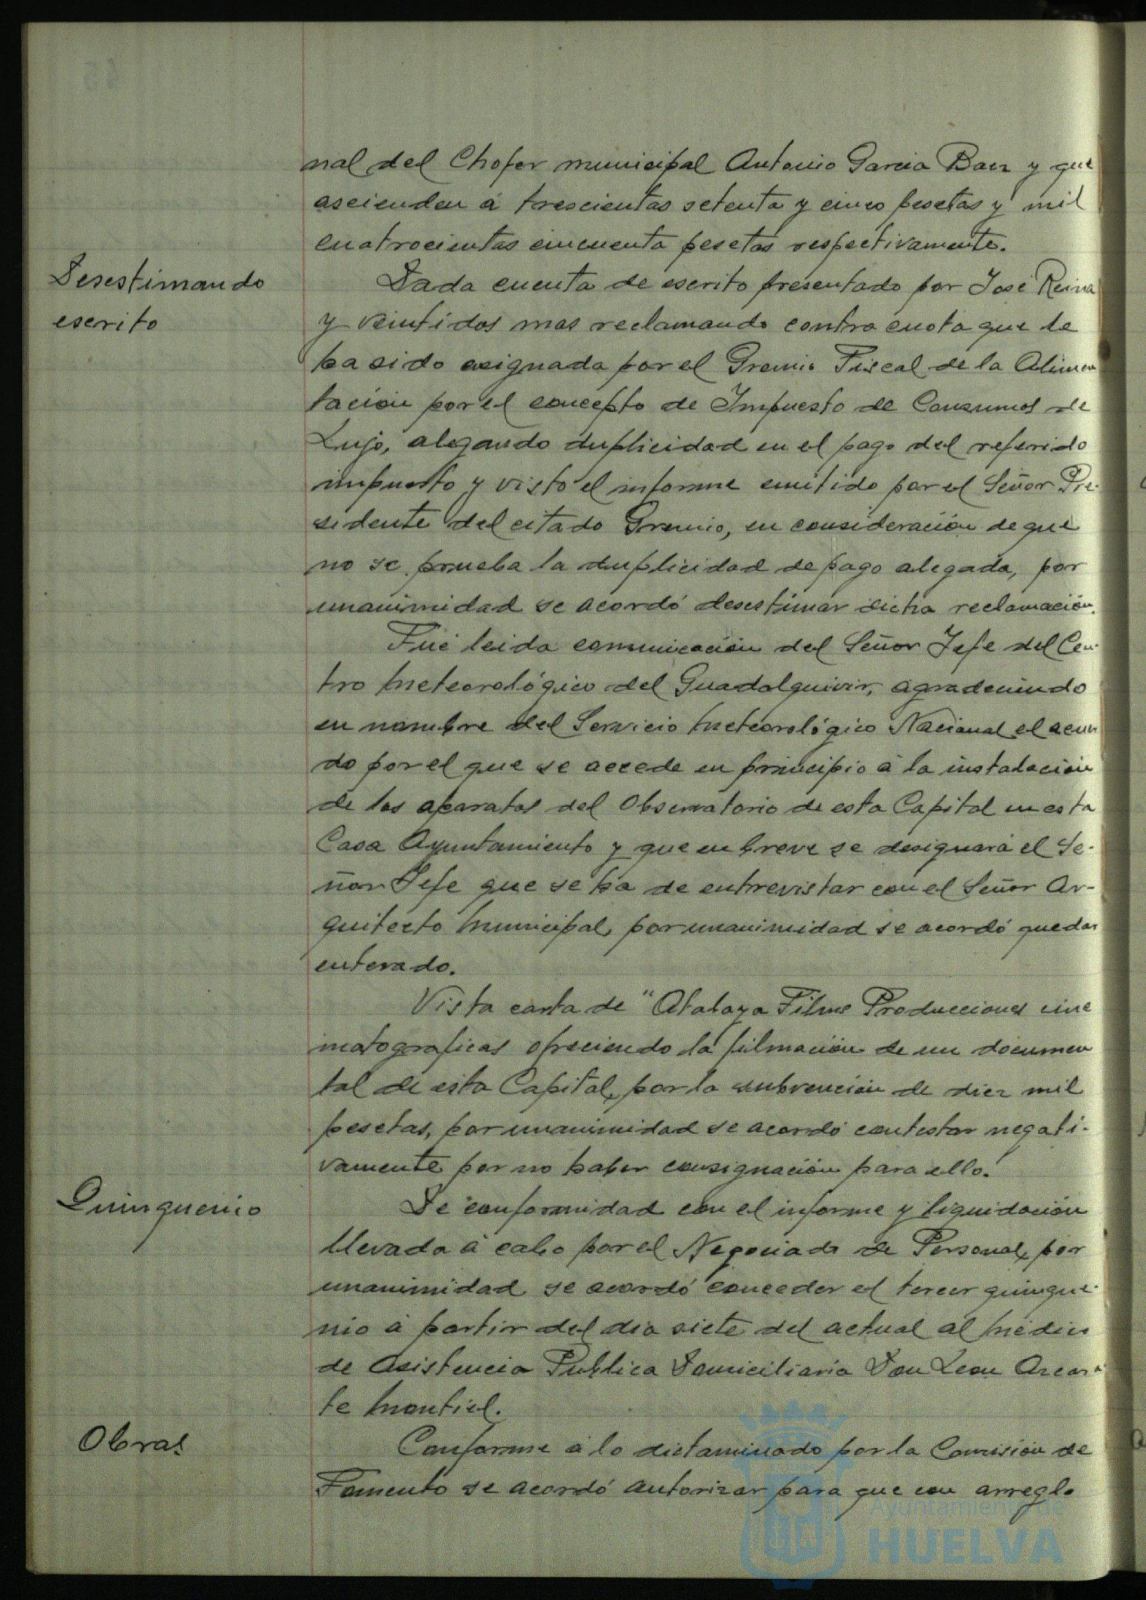 nal del Chofer municipal Antonio Garcia Baez y que
ascienden á trescientas setenta y cinco pesetas y mil
cuatrocientas cincuenta pesetas respectivamente.
Desestimando
escrito
Dada cuenta de escrito presentado por José Reina
y veintidos mas reclamando contra cuota que le
ha sido asignada por el Gremio Fiscal de la Alimen
tación por el concepto de Impuesto de Consumos de
Lujo, alegando duplicidad en el pago del referido
impuesto y visto el informe emitido por el Señor Pre-
sidente del citado Gremio, en consideración de que
no se prueba la duplicidad de pago alegada, por
unanimidad se acordó desestimar dicha reclamación.
Fué leida comunicación del Señor Jefe del Cen-
tro Meteorológico del Guadalquivir, agradeciendo
en nombre del Servicio Meteorológico Nacional el acuer
do por el que se accede en principio á la instalación
de los aparatos del Observatorio de esta Capital en esta
Casa Ayuntamiento y que en breve se designará el Se-
ñor Jefe que se ha de entrevistar con el Señor Ar-
quitecto Municipal, por unanimidad se acordó quedar
enterado.
Vista carta de "Atalaya Films Producciones cine
matograficas ofreciendo la filmación de un documen
tal de esta Capital, por la subvención de diez mil
pesetas, por unanimidad se acordó contestar negati-
vamente por no haber consignación para ello.
Quinquenio
De conformidad con el informe y liquidación
llevada á cabo por el Negociado de Personal, por
unanimidad se acordó conceder el tercer quinque-
nio á partir del dia siete del actual al Médico
de Asistencia Publica Domiciliaria Don Leon Azcar
te Montiel.
Obras
Conforme á lo dictaminado por la Comisión de
Fomento se acordó autorizar para que con arreglo
Ayuntamiento de
HUELVA